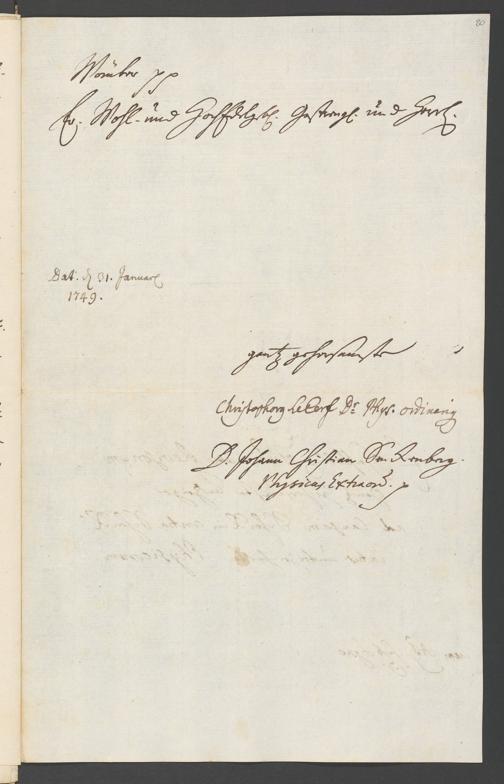 80
Worüber pp
Ew. Wohl- und Hochedelgeb. Gestrengl. und Herrl.
Dat. d. 31. Januarÿ
1749.
gantz gehorsamste
Christophorus Le Cerf Dr. Phys. ordinariq
D. Johann Christian Senckenberg.
Physicus Extraord.